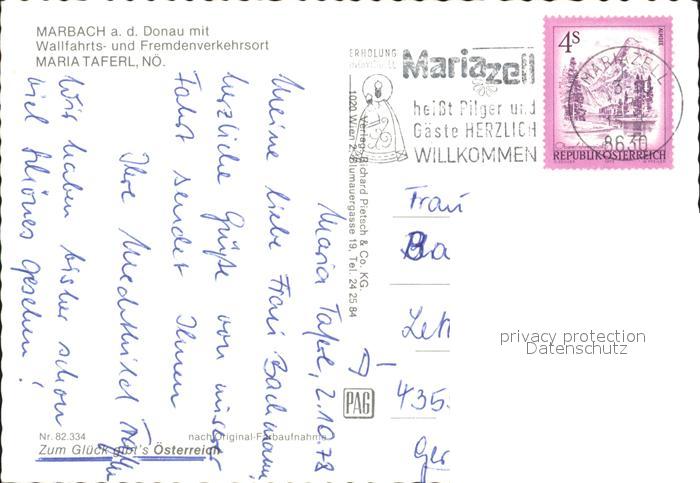 MARBACH a. d. Donau mit
Wallfahrts- und Fremdenverkehrsort
MARIA TAFERL, NÖ.
ERHOLUNG
Mariazell
heißt Pilger und
Gäste HERZLICH
WILLKOMMEN
4S
REPUBLIK ÖSTERREICH
MARIAZELL
8630
Verlag: Richard Pietsch & Co. KG.
1020 Wien, Blumauergasse 19, Tel. 24 25 84
Maria Taferl, 2.10.78
Meine liebe Frau Bachmann,
herzliche Grüße von unserer
Fahrt sendet Ihnen
Ihre Mechthild
Wir haben bisher schon
viel Schönes gesehen!
Frau
Ba
D-
435
Ger
PAG
Nr. 82.334
nach Original-Farbaufnahme
Zum Glück gibt's Österreich
privacy protection
Datenschutz